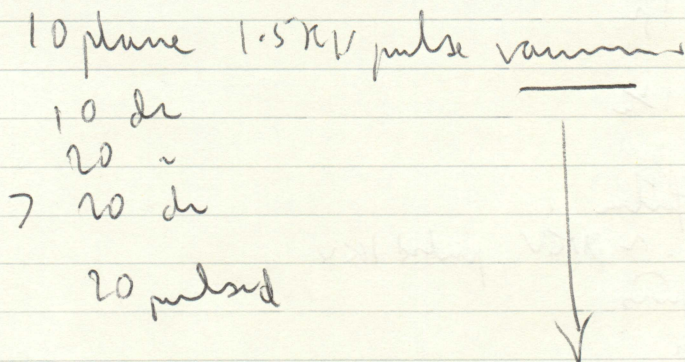 10 plane 1.5KV pulse vacuum
10 dc
20 "
> 20 dc
20 pulsed